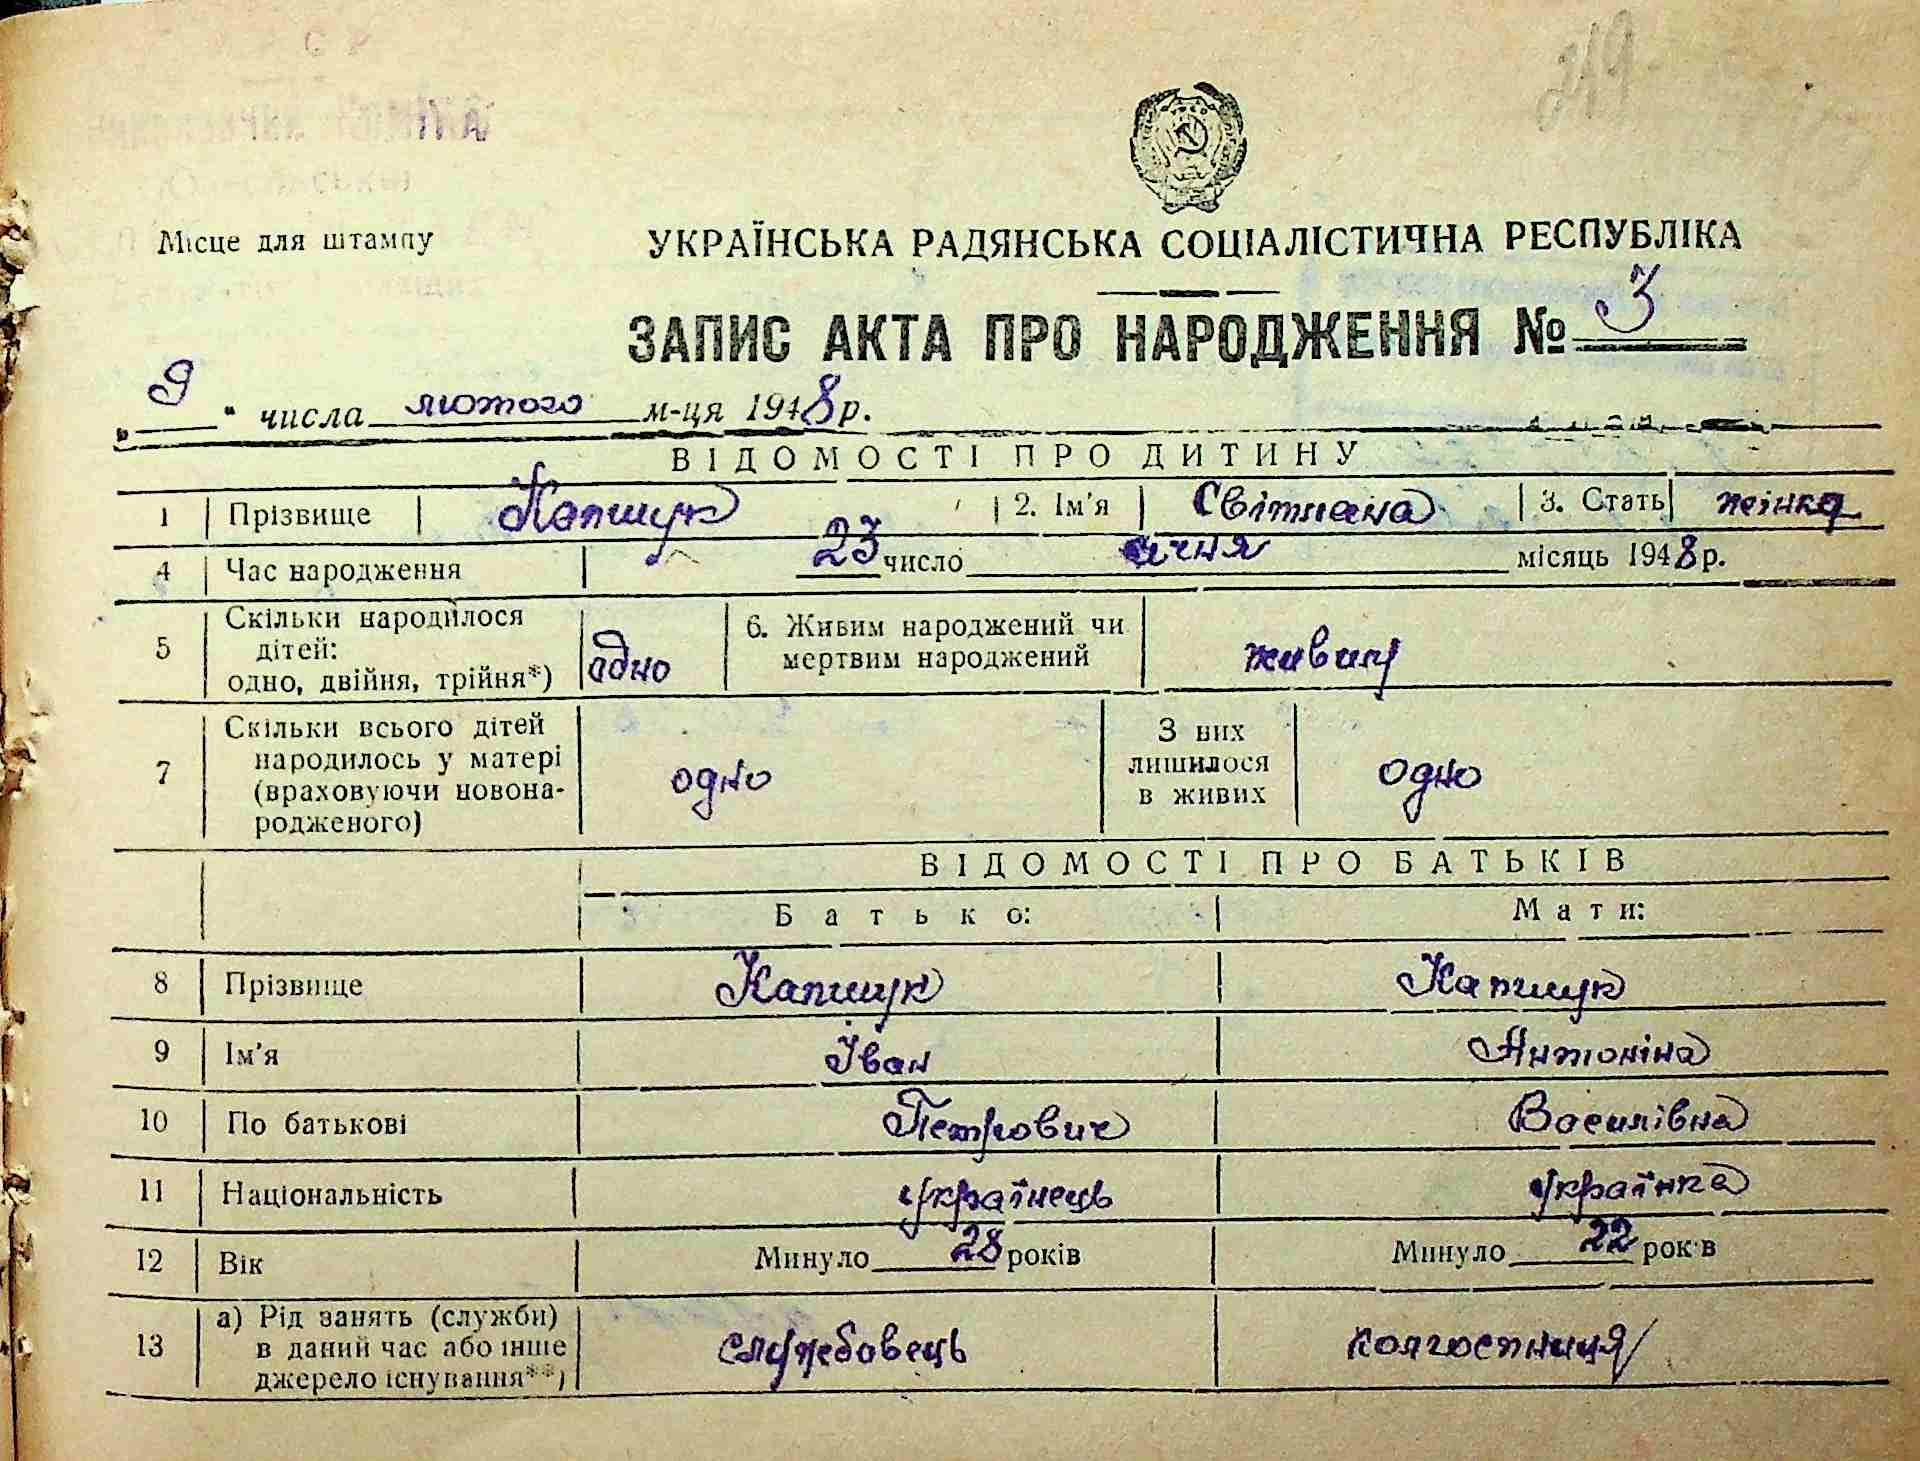 Місце для штампу
УКРАЇНСЬКА РАДЯНСЬКА СОЦІАЛІСТИЧНА РЕСПУБЛІКА
ЗАПИС АКТА ПРО НАРОДЖЕННЯ № 3
„ 9 “ числа лютого м-ця 1948 р.
ВІДОМОСТІ ПРО ДИТИНУ
1 Прізвище Капшук 2. Ім'я Світлана 3. Стать жінка
4 Час народження 23 число січня місяць 1948 р.
5 Скільки народилося дітей: одно, двійня, трійня*) одно 6. Живим народжений чи мертвим народжений живим
7 Скільки всього дітей народилось у матері (враховуючи новона-родженого) одно З них лишилося в живих одно
ВІДОМОСТІ ПРО БАТЬКІВ
Батько: Мати:
8 Прізвище Капшук Капшук
9 Ім'я Іван Антоніна
10 По батькові Петрович Василівна
11 Національність українець українка
12 Вік Минуло 28 років Минуло 22 років
13 а) Рід занять (служби) в даний час або інше джерело існування**) службовець колгоспниця